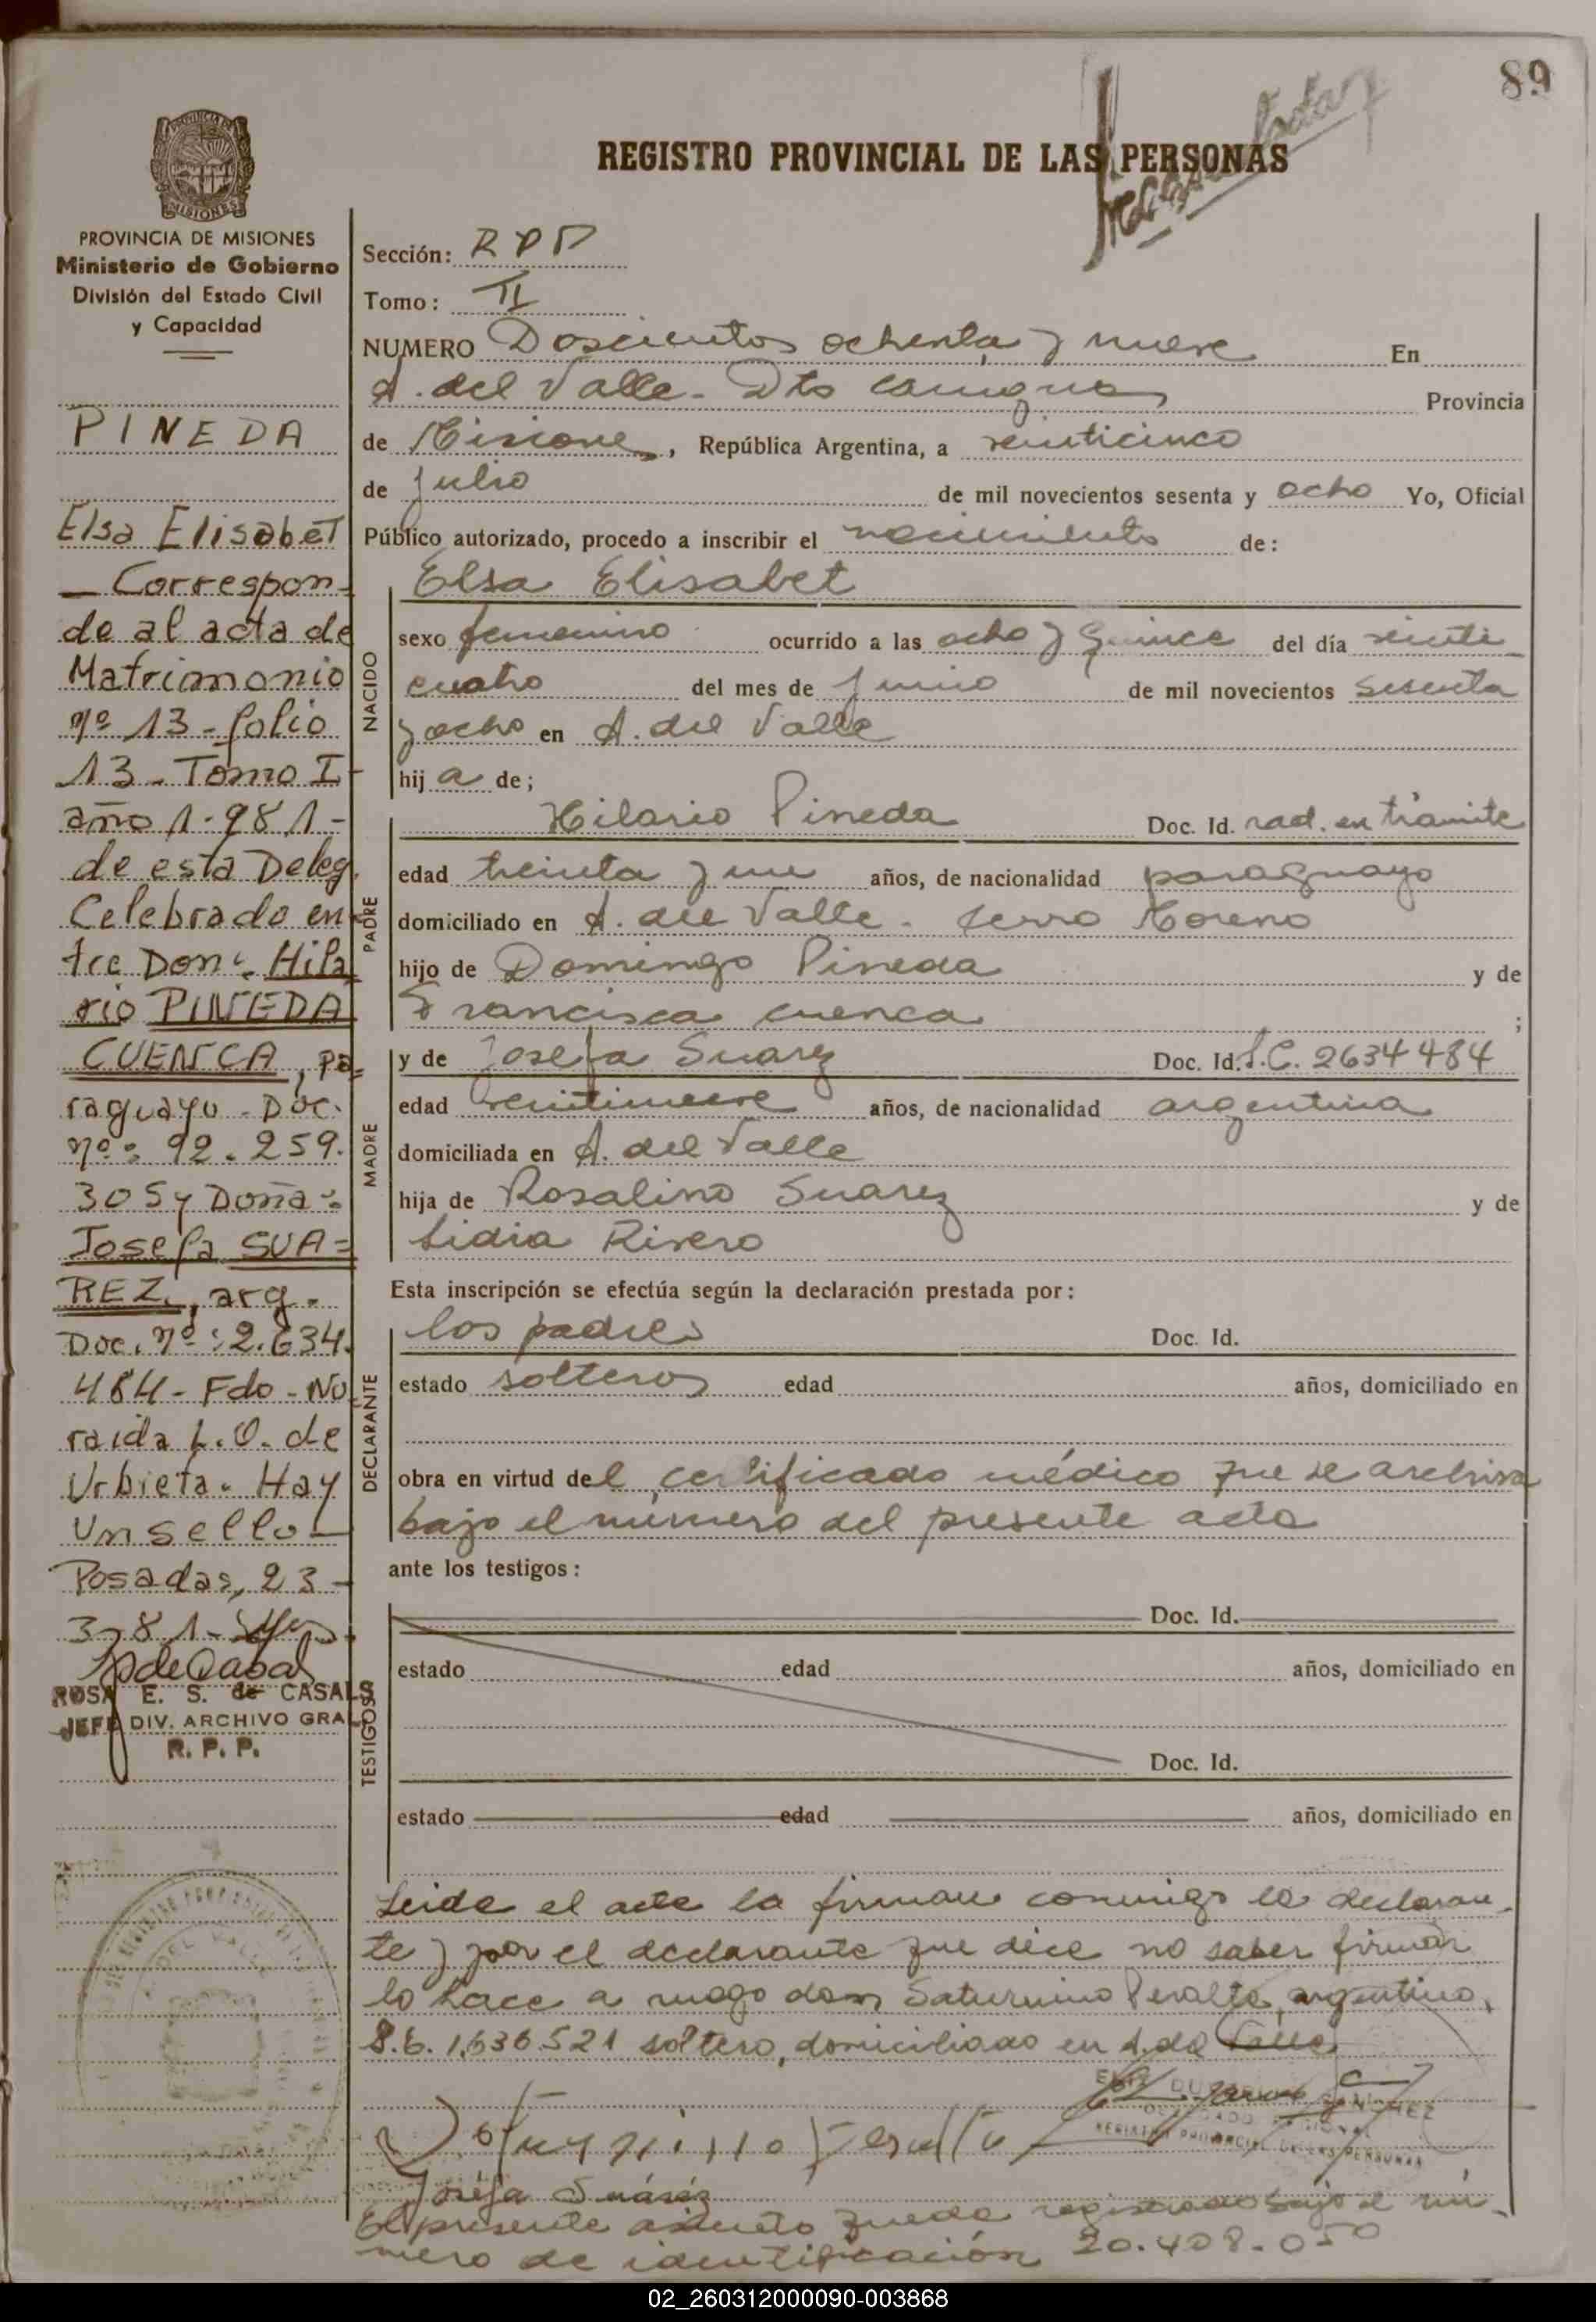 89
REGISTRO PROVINCIAL DE LAS PERSONAS
PROVINCIA DE MISIONES
Ministerio de Gobierno
División del Estado Civil
y Capacidad
PINEDA
Elsa Elisabet
— Correspon-
de al acta de
Matrimonio
nº 13 - folio
13 - Tomo I -
año 1.981 -
de esta Deleg.
Celebrado en-
tre Don: Hila
rio PINEDA
CUENCA, pa=
raguayo - Doc.
nº: 92.259.
305 y Doña:
Josefa SUA=
REZ, arg.
Doc. nº: 2.634.
484 - Fdo - No
raida L.O. de
Urbieta. Hay
un sello -
Posadas, 23 -
3-81-
ROSA E. S. de CASALS
JEFE DIV. ARCHIVO GRAL
R. P. P.
Sección: R P P
Tomo: II
NUMERO Doscientos ochenta y nueve En
A. del Valle - Dto Cainguas Provincia
de Misiones, República Argentina, a veinticinco
de Julio de mil novecientos sesenta y ocho Yo, Oficial
Público autorizado, procedo a inscribir el nacimiento de:
Elsa Elisabet
NACIDO
sexo femenino ocurrido a las ocho y quince del día veinti
cuatro del mes de Junio de mil novecientos sesenta
y ocho en A. del Valle
hija de;
PADRE
Hilario Pineda Doc. Id. rad. en trámite
edad treinta y un años, de nacionalidad paraguayo
domiciliado en A. del Valle - Cerro Moreno
hijo de Domingo Pineda y de
Francisca Cuenca ;
MADRE
y de Josefa Suarez Doc. Id. L.C. 2634484
edad veintinueve años, de nacionalidad argentina
domiciliada en A. del Valle
hija de Rosalino Suarez y de
Lidia Rivero
Esta inscripción se efectúa según la declaración prestada por:
DECLARANTE
los padres Doc. Id.
estado solteros edad años, domiciliado en
obra en virtud del certificado médico que se archiva
bajo el número del presente acta
ante los testigos:
TESTIGOS
Doc. Id.
estado edad años, domiciliado en
Doc. Id.
estado edad años, domiciliado en
Leida el acta la firman conmigo la declaran-
te y por el declarante que dice no saber firmar
lo hace a ruego don Saturnino Peralta, argentino,
1.636.521 soltero, domiciliado en A. del Valle
Saturnino Peralta
REGISTRO PROVINCIAL DE LAS PERSONAS
Josefa Suárez
El presente asiento queda registrado bajo el nú-
mero de identificación 20.408.050
02_260312000090-003868